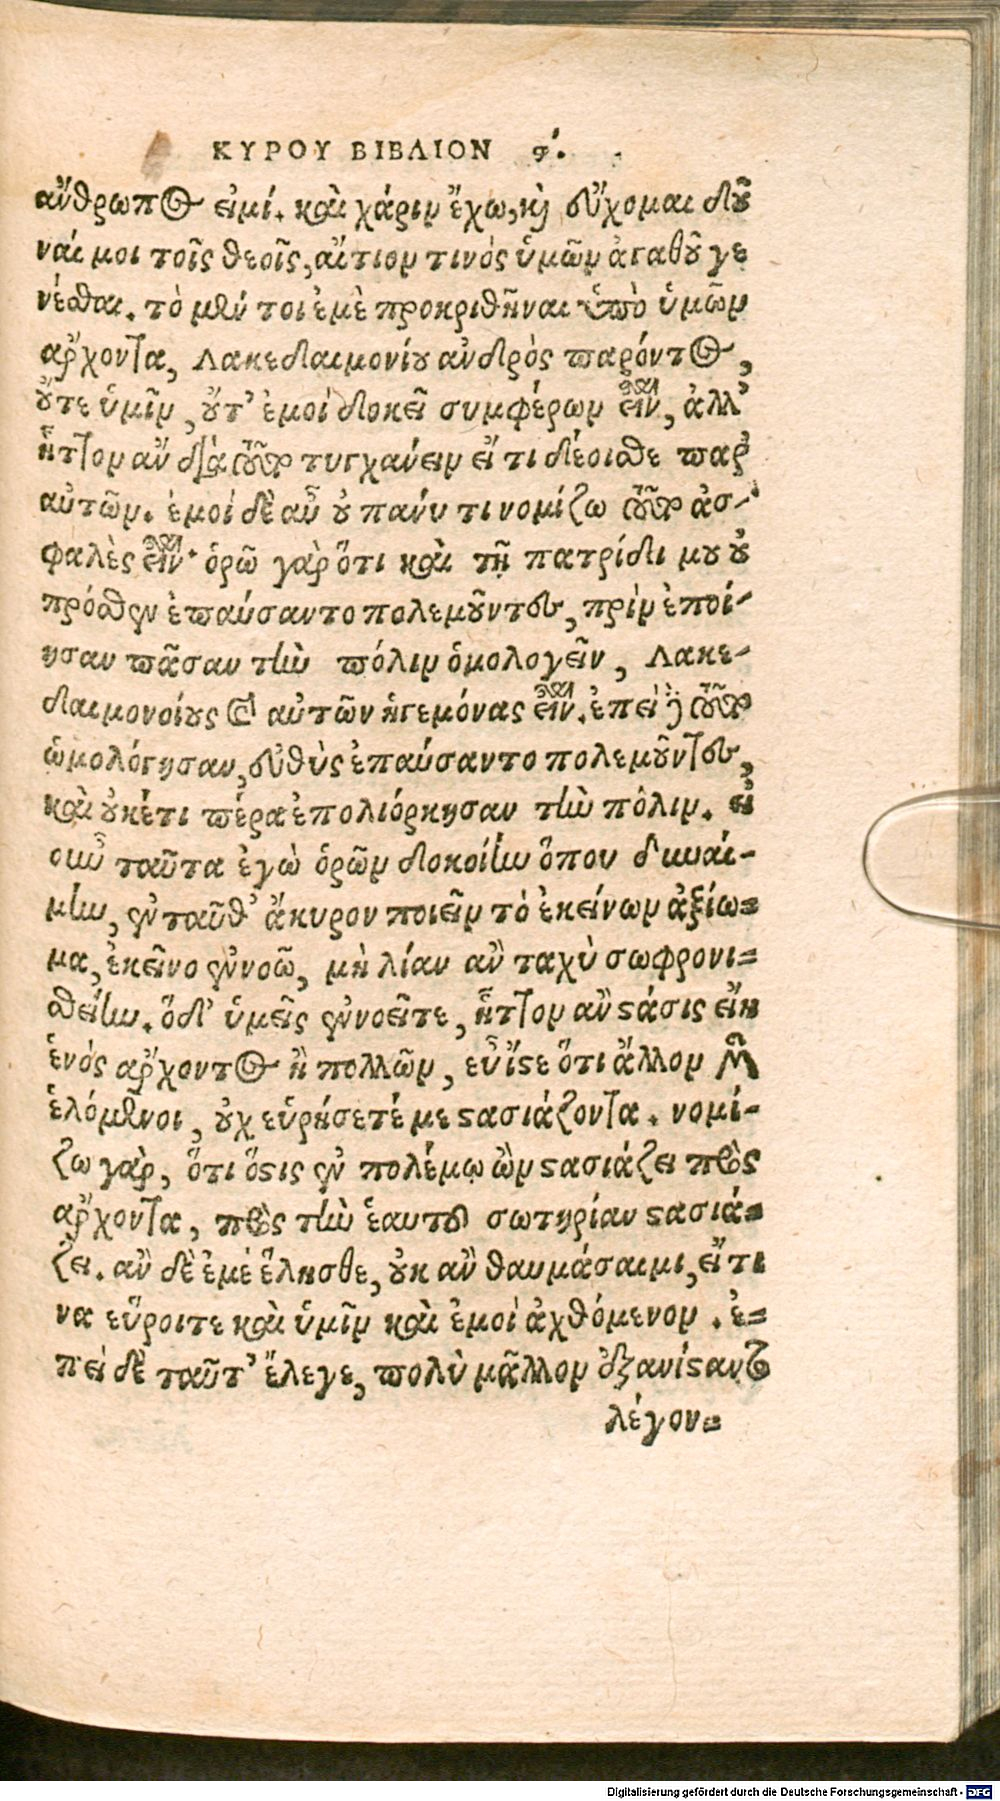 ΚΥΡΟΥ ΒΙΒΛΙΟΝ ϛ΄.
ἄνθρωπος εἰμί. καὶ χάριν ἔχω, καὶ εὔχομαι δοῦ
ναί μοι τοῖς θεοῖς, αἴτιον τινός ὑμῶν ἀγαθοῦ γε
νέσθαι. τὸ μέν τοι ἐμὲ προκριθῆναι ὑπὸ ὑμῶν
ἄρχοντα, Λακεδαιμονίου ἀνδρός παρόντος,
οὔτε ὑμῖν, οὔτ' ἐμοί δοκεῖ συμφέρων εἶναι, ἀλλ'
ἧττον ἂν διὰ τοῦτο τυγχάνειν εἴ τι δέοισθε παρ'
αὐτῶν. ἐμοί δὲ αὖ οὐ πάνυ τι νομίζω τοῦτο ἀσ-
φαλὲς εἶναι· ὁρῶ γὰρ ὅτι καὶ τῇ πατρίδι μου οὐ
πρόσθεν ἐπαύσαντο πολεμοῦντες, πρὶν ἐποί-
ησαν πᾶσαν τὴν πόλιν ὁμολογεῖν, Λακε-
δαιμονίους καὶ αὐτῶν ἡγεμόνας εἶναι. ἐπεὶ δὲ τοῦτο
ὡμολόγησαν, εὐθὺς ἐπαύσαντο πολεμοῦντες,
καὶ οὐκέτι πέρα ἐπολιόρκησαν τὴν πόλιν. εἰ
οὖν ταῦτα ἐγὼ ὁρῶν δοκοίην ὅπου δυναί-
μην, ἐνταῦθ' ἄκυρον ποιεῖν τὸ ἐκείνων ἀξίω-
μα, ἐκεῖνο ἐννοῶ, μὴ λίαν ἂν ταχὺ σωφρονι-
σθείην. ὅδ' ὑμεῖς ἐννοεῖτε, ἧττον ἂν στάσις εἴη
ἑνός ἄρχοντος ἢ πολλῶν, εὖ ἴστε ὅτι ἄλλον μὲν
ἑλόμενοι, οὐχ εὑρήσετέ με στασιάζοντα. νομί-
ζω γὰρ, ὅτι ὅστις ἐν πολέμῳ ὢν στασιάζει πρὸς
ἄρχοντα, πρὸς τὴν ἑαυτοῦ σωτηρίαν στασιά-
ζει. ἂν δὲ ἐμέ ἕλησθε, οὐκ ἂν θαυμάσαιμι, εἴ τι
να εὕροιτε καὶ ὑμῖν καὶ ἐμοί ἀχθόμενον. ἐ-
πεί δὲ ταῦτ' ἔλεγε, πολὺ μᾶλλον ἐξανίσταντο
λέγον-
Digitalisierung gefördert durch die Deutsche Forschungsgemeinschaft - DFG